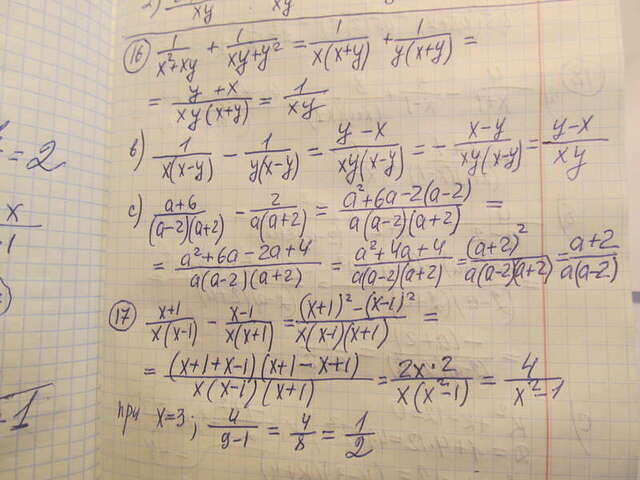 2) xy xy
16) 1/(x²+xy) + 1/(xy+y²) = 1/(x(x+y)) + 1/(y(x+y)) =
= (y+x)/(xy(x+y)) = 1/(xy)
в) 1/(x(x-y)) - 1/(y(x-y)) = (y-x)/(xy(x-y)) = - (x-y)/(xy(x-y)) = (y-x)/(xy)
= 2
c) (a+6)/((a-2)(a+2)) - 2/(a(a+2)) = (a²+6a-2(a-2))/(a(a-2)(a+2)) =
= (a²+6a-2a+4)/(a(a-2)(a+2)) = (a²+4a+4)/(a(a-2)(a+2)) = (a+2)²/(a(a-2)(a+2)) = (a+2)/(a(a-2))
17) (x+1)/(x(x-1)) - (x-1)/(x(x+1)) = ((x+1)²-(x-1)²)/(x(x-1)(x+1)) =
= (x+1+x-1)(x+1-x+1)/(x(x-1)(x+1)) = 2x·2/(x(x²-1)) = 4/(x²-1)
при x=3; 4/(9-1) = 4/8 = 1/2